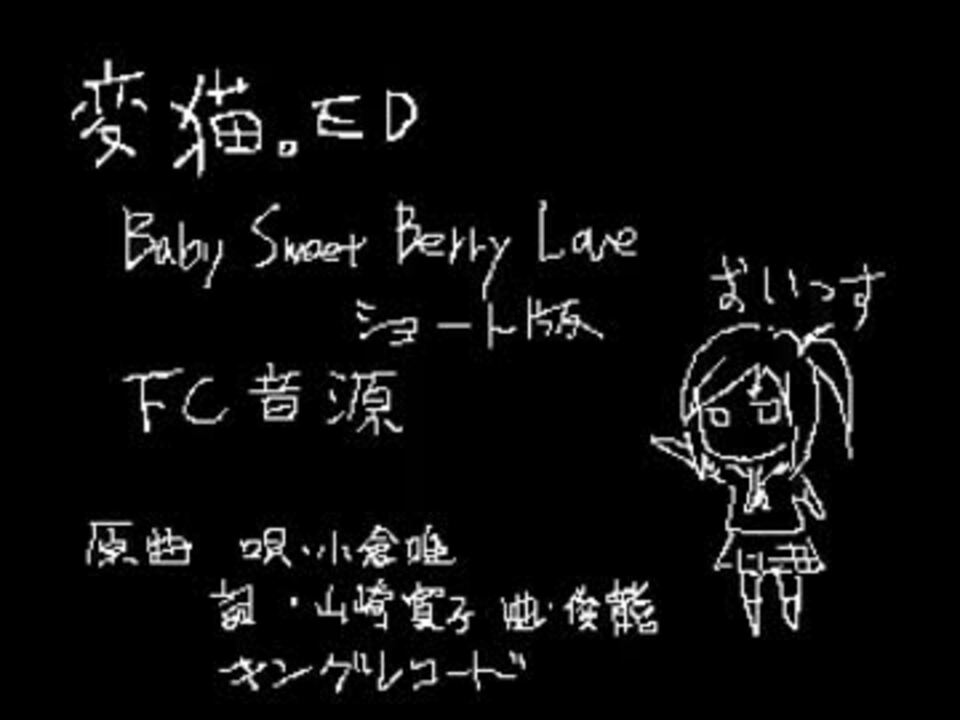 変猫。ED
Baby Sweet Berry Love
ショート版
おいっす
FC音源
原曲 唄・小倉唯
詞・山崎寛子 曲・俊龍
キングレコード